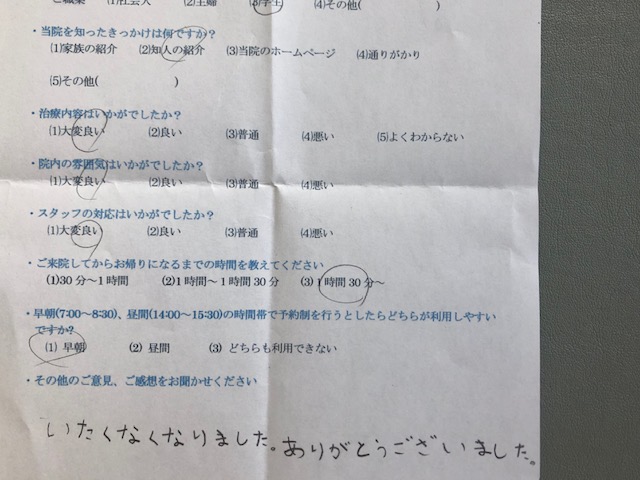 ご職業 (1)社会人 (2)主婦 (3)学生 (4)その他( )
・当院を知ったきっかけは何ですか?
(1)家族の紹介 (2)知人の紹介 (3)当院のホームページ (4)通りがかり
(5)その他( )
・治療内容はいかがでしたか?
(1)大変良い (2)良い (3)普通 (4)悪い (5)よくわからない
・院内の雰囲気はいかがでしたか?
(1)大変良い (2)良い (3)普通 (4)悪い
・スタッフの対応はいかがでしたか?
(1)大変良い (2)良い (3)普通 (4)悪い
・ご来院してからお帰りになるまでの時間を教えてください
(1)30分～1時間 (2)1時間～1時間30分 (3)1時間30分～
・早朝(7:00～8:30)、昼間(14:00～15:30)の時間帯で予約制を行うとしたらどちらが利用しやすい
ですか?
(1) 早朝 (2) 昼間 (3) どちらも利用できない
・その他のご意見、ご感想をお聞かせください
いたくなくなりました。ありがとうございました。